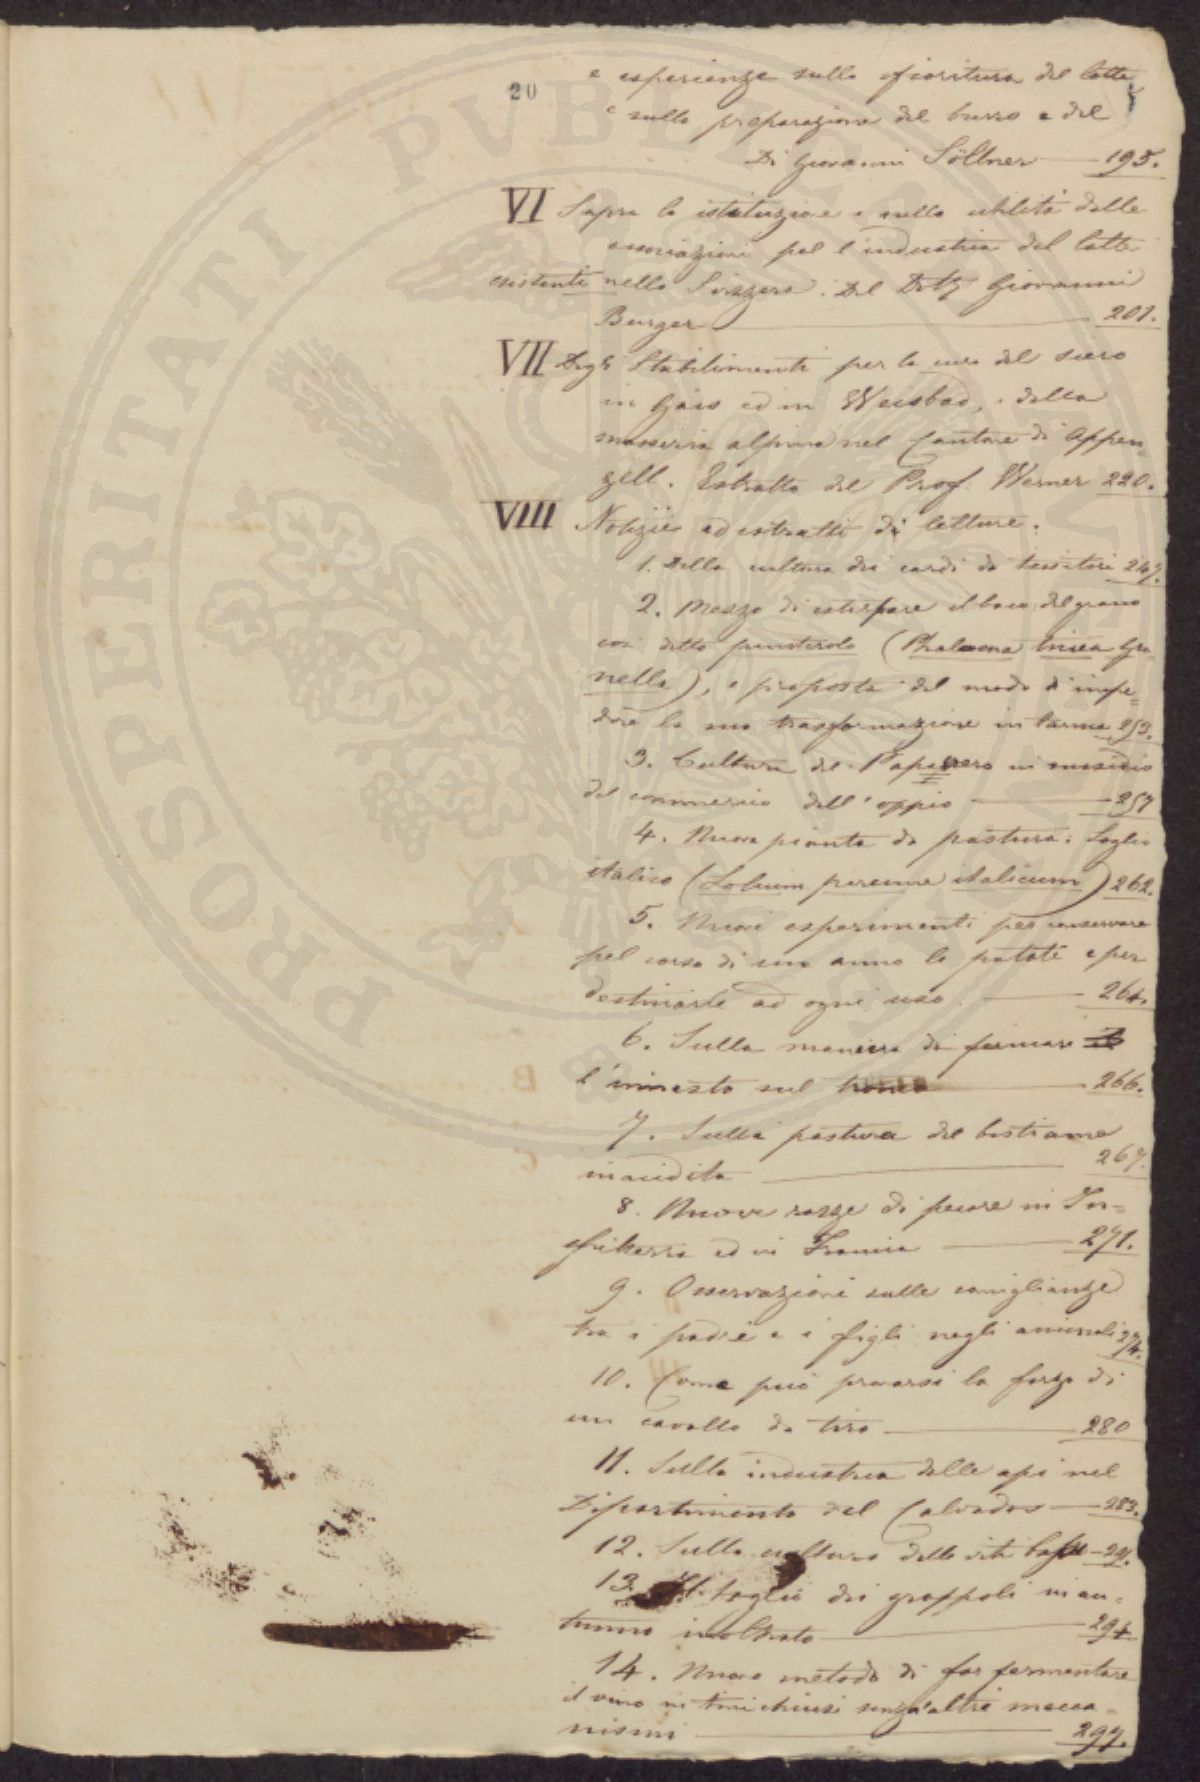 20
e esperienze sulla sfioritura del latte
e sulla preparazione del burro e del
Di Giovanni Söltner 195.
VI Sopra la istituzione e sulla utilità delle
associazioni pel l'industria del latte
esistenti nella Svizzera. Del Dott Giovanni
Burger 201.
VII Degli Stabilimenti per la cura del siero
in Gais ed in Weisbad, e della
masseria alpina nel Cantone di Appen=
zell. Estratto del Prof. Werner 220.
VIII Notizie ed estratti di letture.
1. Della cultura dei cardi da tessitori 247.
2. Mezzo di estirpare il baco del grano
così detto punterolo (Phalaena tinea gra=
nella), e proposta del modo d'impe=
dire la sua trasformazione in larma 253.
3. Cultura del Papavero in sussidio
del commercio dell'oppio 257
4. Nuova pianta da pastura: Loglio
italico (Lolium perenne italicum) 262.
5. Nuovi esperimenti per conservare
pel corso di un anno le patate e per
destinarle ad ogni uso. 264.
6. Sulla maniera di fermare il
l'innesto sul tronco 266.
7. Sulla pastura del bestiame
inacidita 267.
8. Nuove razze di pecore in In=
ghilterra ed in Francia 271.
9. Osservazioni sulle somiglianze
tra i padri e i figli negli animali 274.
10. Come può provarsi la forza di
un cavallo da tiro 280
11. Sulla industria delle api nel
Dipartimento del Calvados 283.
12. Sulla cultura della vite
13. Il taglio dei grappoli in au=
tunno inoltrato 294
14. Nuovo metodo di far fermentare
il vino in tini chiusi senz'altri mecca=
nismi 297.
PROSPERITATI PVBLICAE